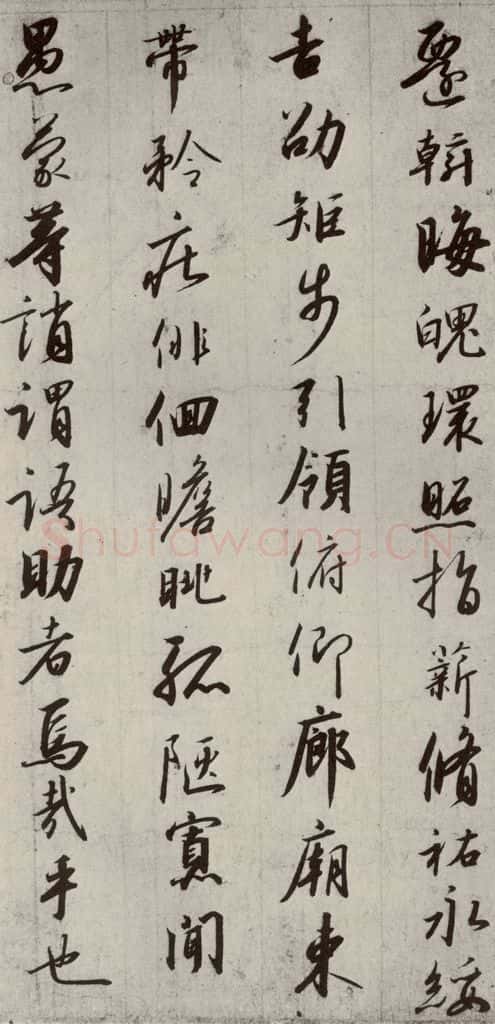 遷斡晦魄環照指薪脩祐永綏
吉劭矩步引領俯仰廊廟束
帶矜莊俳佪瞻眺孤陋寡聞
愚蒙等誚謂語助者焉哉乎也
Shufawang.CN